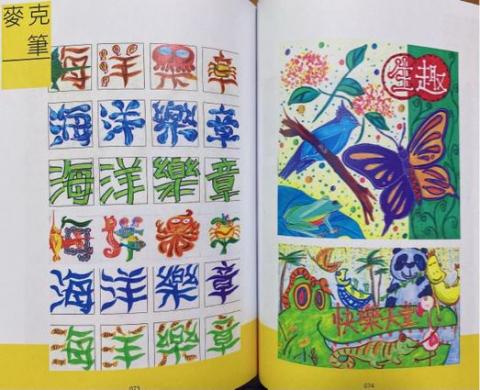 麥克
筆
海洋樂章
海洋樂章
海洋樂章
海洋樂章
海洋樂章
073
童趣
快樂天堂
074